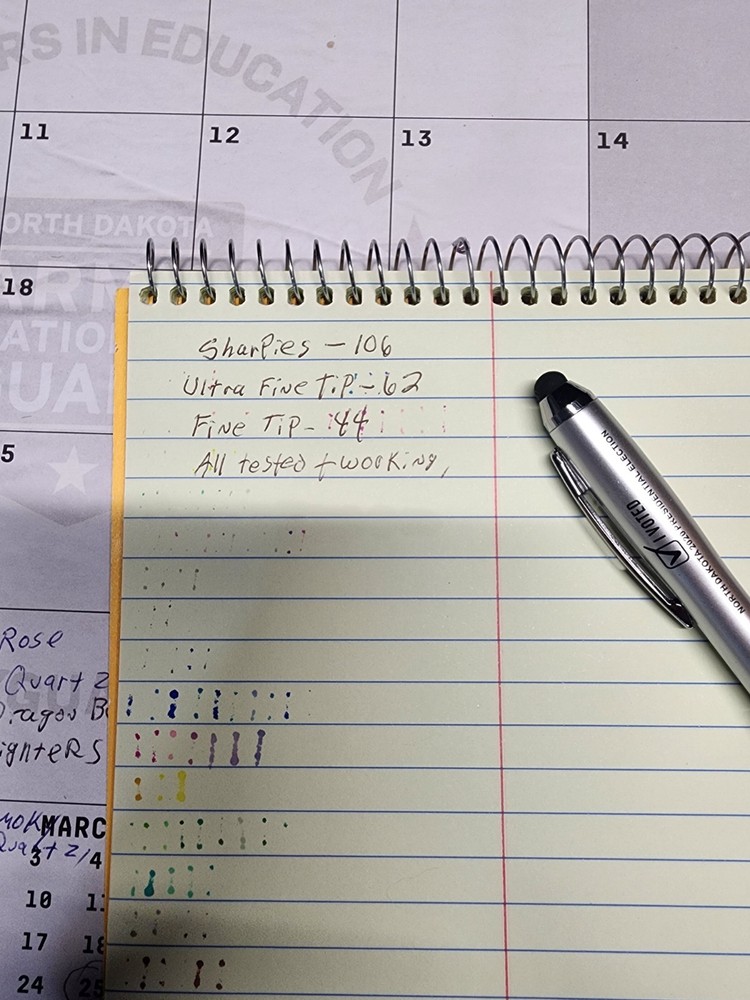 RS IN EDUCATION
11 12 13 14
ORTH DAKOTA
18
ATIO
GUA
5
Sharpies - 106
Ultra Fine Tip - 62
Fine Tip - 44
All tested + working,
I VOTED
NORTH DAKOTA 2020 PRESIDENTIAL ELECTION
Rose
Quartz
ragon B
ighters
MARC
3 4
10 1
17 18
24 25